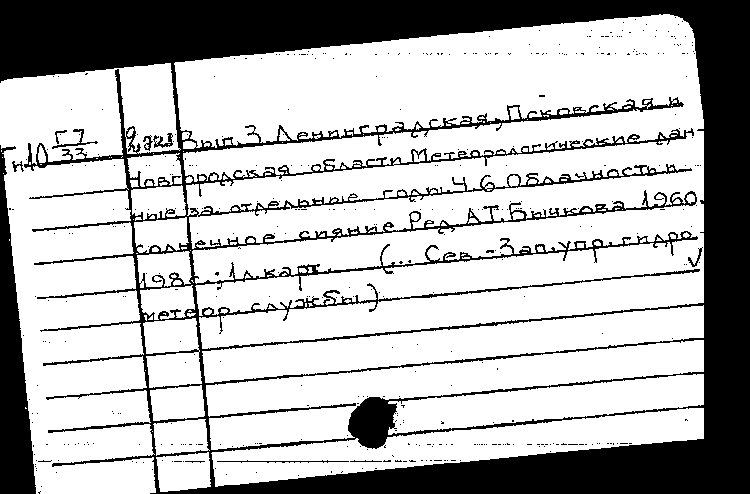 Гн10 Г7/33 Вып.3. Ленинградская, Псковская и
Новгородская области Метеорологические дан-
ные за отдельные годы. Ч.6 Облачность и
солнечное сияние Ред. А.Т.Бычкова 1960.
198с.; 1л.карт. (... Сев.-Зап.упр.гидро-
метеор.службы)